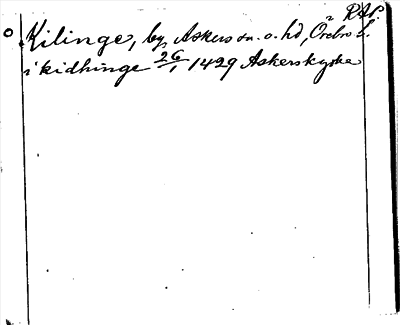 RAP.
Kilinge, by, Askers sn. o. hd, Örebro l.
i kidhinge 26/1 1429 Askerskyrka